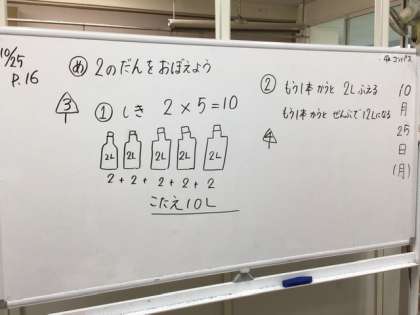 10/25
P.16
め 2のだんをおぼえよう
3
① しき 2×5=10
2L 2L 2L 2L 2L
2+2+2+2+2
こたえ10L
② もう1本かうと 2Lふえる
もう1本かうと ぜんぶで12Lになる
4
10月25日(月)